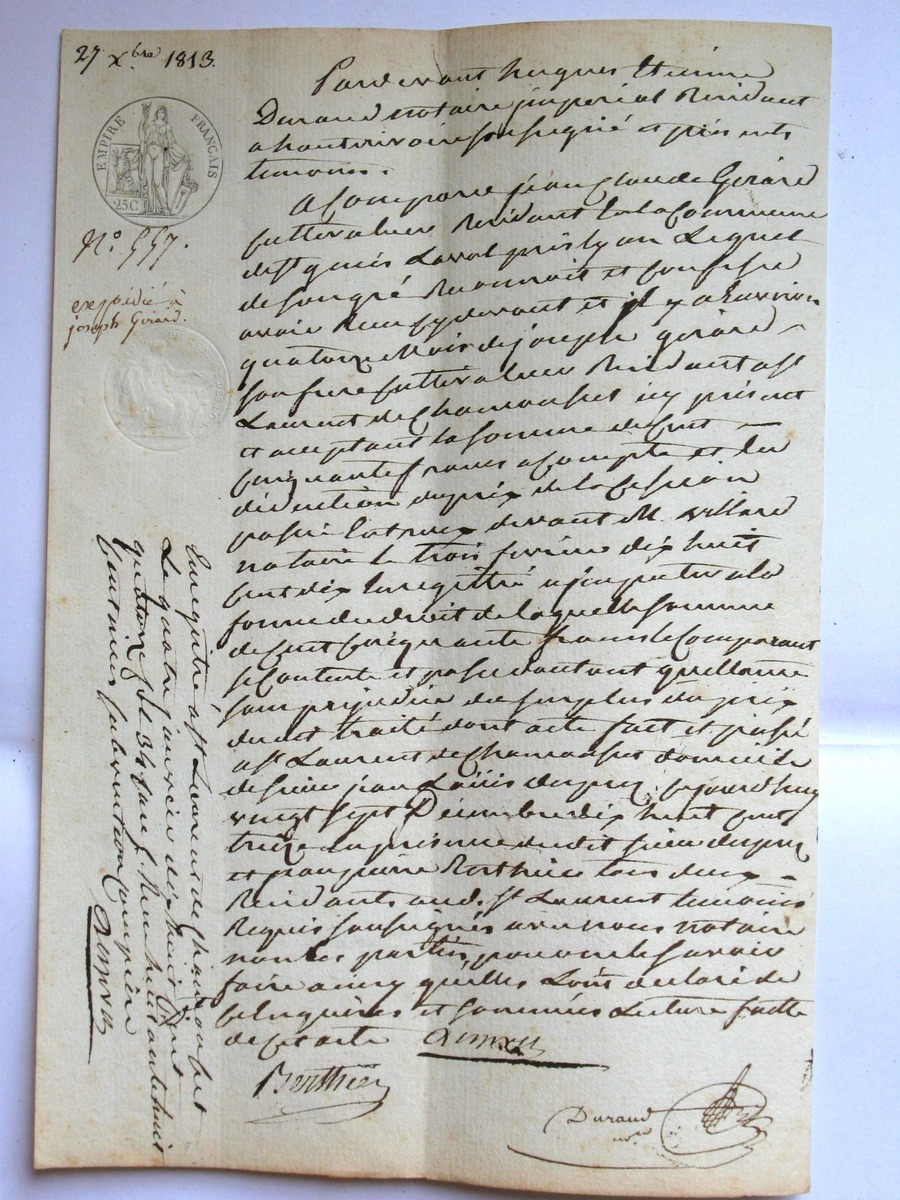 27 Xbre 1813.
EMPIRE FRANÇAIS
25 C
N° 557.
expédié à
joseph Girard.
Pardevant hugues Etienne
Durand notaire imperial Residant
a hauterivoire soussigné et présents
temoins.
A Comparu jean Claude Girard
Cultivateur Residant la Commune
de st genis Laval près lyon Lequel
de son gré Reconnoit et Confesse
avoir Reçu cy devant et il y a Environ
quatorze Mois de joseph girard
son frere Cultivateur Residant a st
Laurent de Chamousset icy présent
et acceptant la somme de Cent
Cinquante francs a Compte et en
déduction du prix de la Cession
passée Entreux devant M. Villard
notaire le trois février dix huit
Cent dix Enregistré
forme du droit de laquelle somme
de Cent Cinquante francs le Comparant
se Contente et passe quittance
sans prejudice du surplus du prix
dudit traité dont acte fait et passé
a st Laurent de Chamousset domicile
de sieur jean Louis dupuy Cejourdhuy
vingt sept Décembre dix huit Cent
treize en présence du dit sieur dupuy
et Berthier tous deux
Residants aud. st Laurent temoins
Requis soussignés avec nous notaire
non les parties pour ne le savoir
faire a ce qu'elles ont declaré de
ce Enquises et sommées Lecture faite
de Cet acte
Berthier
Durand
nre
Enregistré à st Laurent de Chamousset
Le quatre janvier dix huit Cent
quatorze
Centimes subvention Comprise